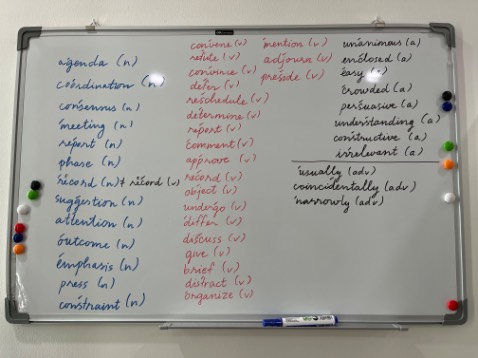 agenda (n)
coordination (n)
consensus (n)
meeting (n)
report (n)
phase (n)
record (n) + record (v)
suggestion (n)
attention (n)
outcome (n)
emphasis (n)
press (n)
constraint (n)
convene (v)
refute (v)
convince (v)
defer (v)
reschedule (v)
determine (v)
report (v)
comment (v)
approve (v)
record (v)
object (v)
undergo (v)
differ (v)
discuss (v)
give (v)
brief (v)
distract (v)
organize (v)
mention (v)
adjourn (v)
preside (v)
unanimous (a)
enclosed (a)
easy (a)
crowded (a)
persuasive (a)
understanding (a)
constructive (a)
irrelevant (a)
usually (adv)
coincidentally (adv)
narrowly (adv)